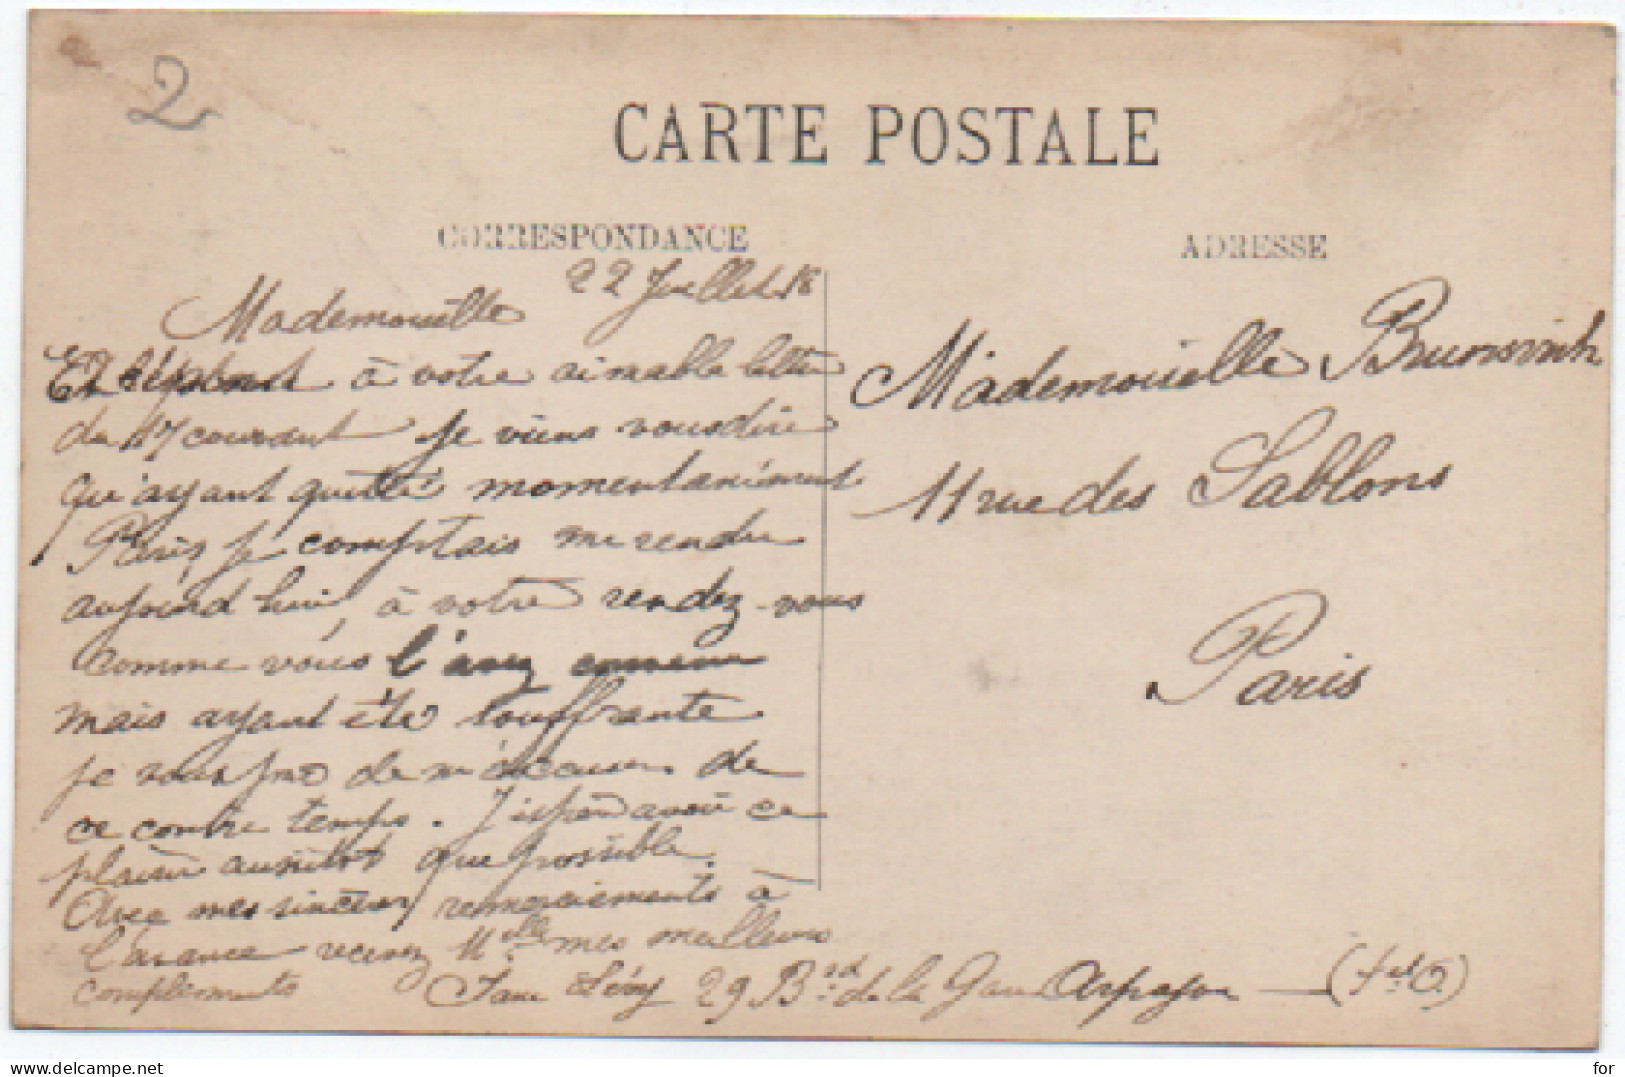 2
CARTE POSTALE
CORRESPONDANCE
22 Juillet 18
Mademoiselle
En réponse à votre aimable lettre
du 17 courant je viens vous dire
qu'ayant quitté momentanément
Paris, je comptais me rendre
aujourd'hui, à votre rendez-vous
comme vous l'avez convenu
mais ayant été souffrante
je vous prie de m'excuser de
ce contre temps. J'espère avoir ce
plaisir aussitôt que possible.
Avec mes sincères remerciements à
l'avance recevez Melle mes meilleurs
compliments
Lévy 29 Bard de la Gare Arpajon — (S. et O.)
ADRESSE
Mademoiselle Brunsvich
11 rue des Sablons
Paris
delcampe.net
for